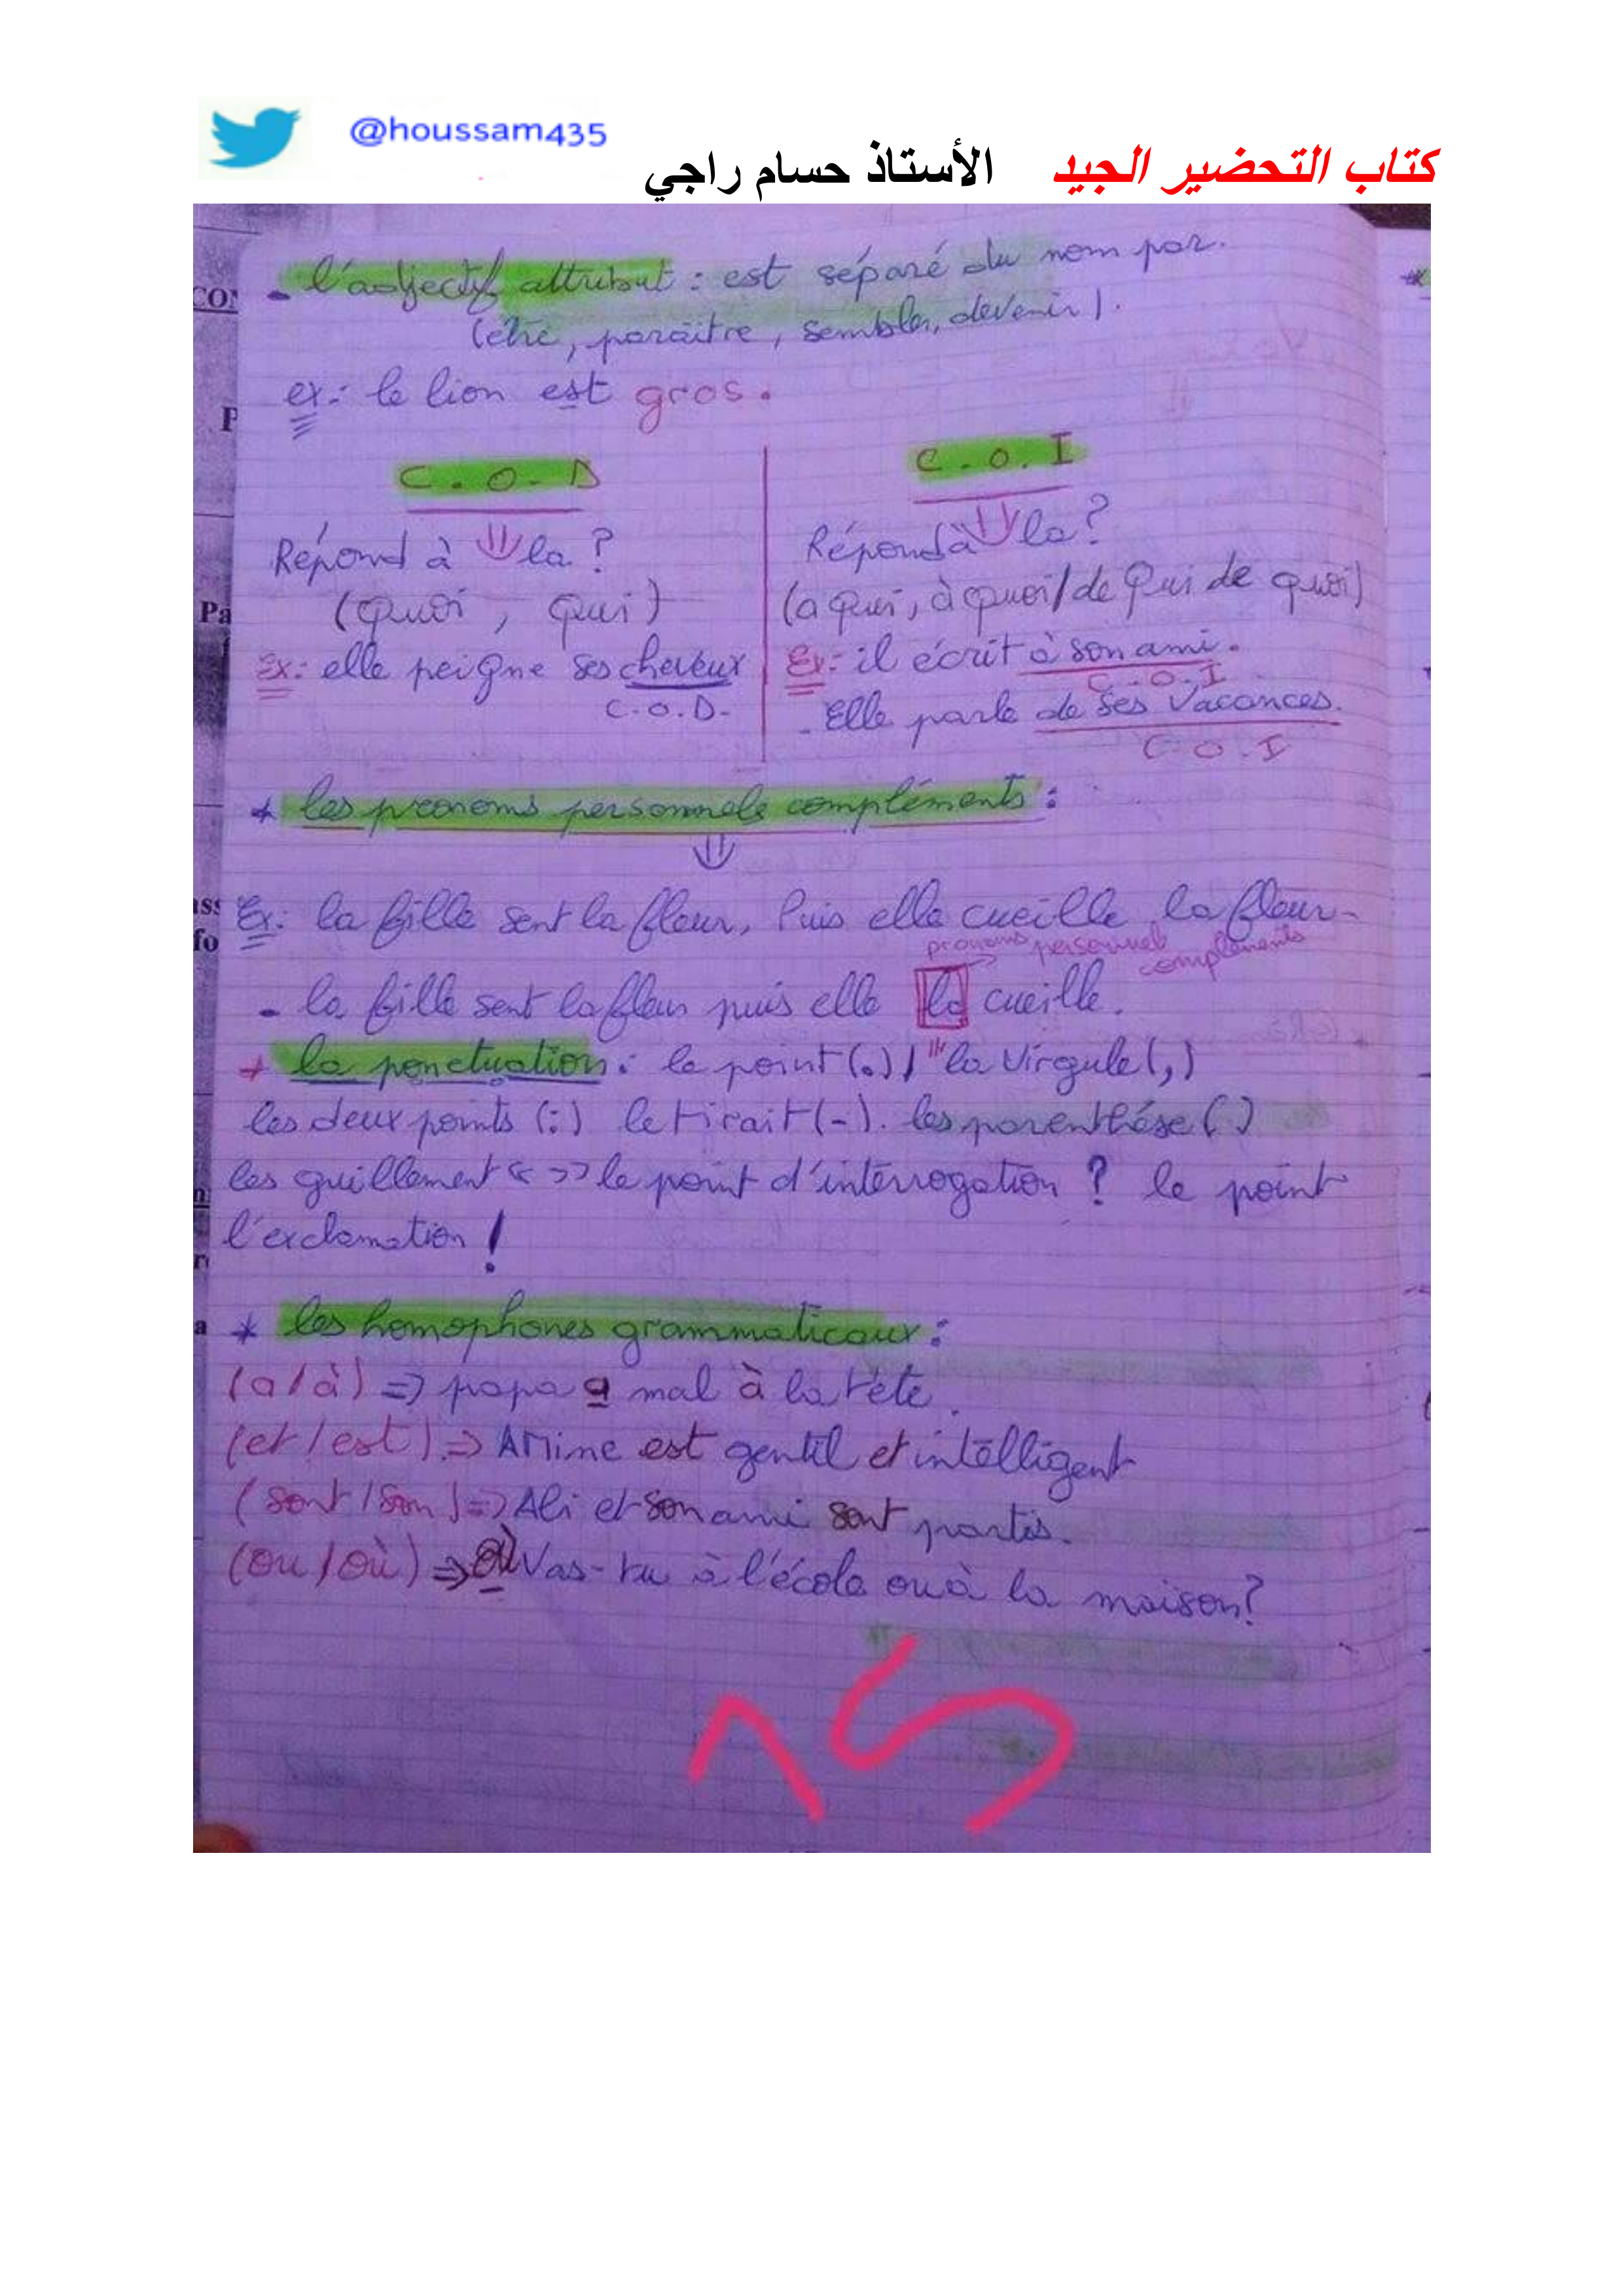 @houssam435
كتاب التحضير الجيد الأستاذ حسام راجي
- l'adjectif attribut : est séparé du nom par.
(être, paraître, sembler, devenir).
ex:- le lion est gros.
C.O.D
Répond à la ?
(quoi, qui)
Ex:- elle peigne ses cheveux
C.O.D-
C.O.I
Répond à la ?
(a qui, à quoi/de qui de quoi)
Ex:- il écrit à son ami.
C.O.I
- Elle parle de ses vacances.
C.O.I
* les pronoms personnels compléments :
Ex:- la fille sent la fleur, Puis elle cueille la fleur-
pronoms personnel compléments
- la fille sent la fleur puis elle la cueille.
+ la ponctuation : le point (.) / la virgule (,)
les deux points (:) le tirait (-). les parenthése ( )
les guillement « >> le point d'interrogation ? le point
l'exclamation !
* les homophones grammaticaux :
(a / à) => papa a mal à la tête.
(et / est) => Amine est gentil et intélligent
(sont / son) => Ali et son ami sont partis.
(ou / où) => où Vas-tu à l'école ou à la maison?
15